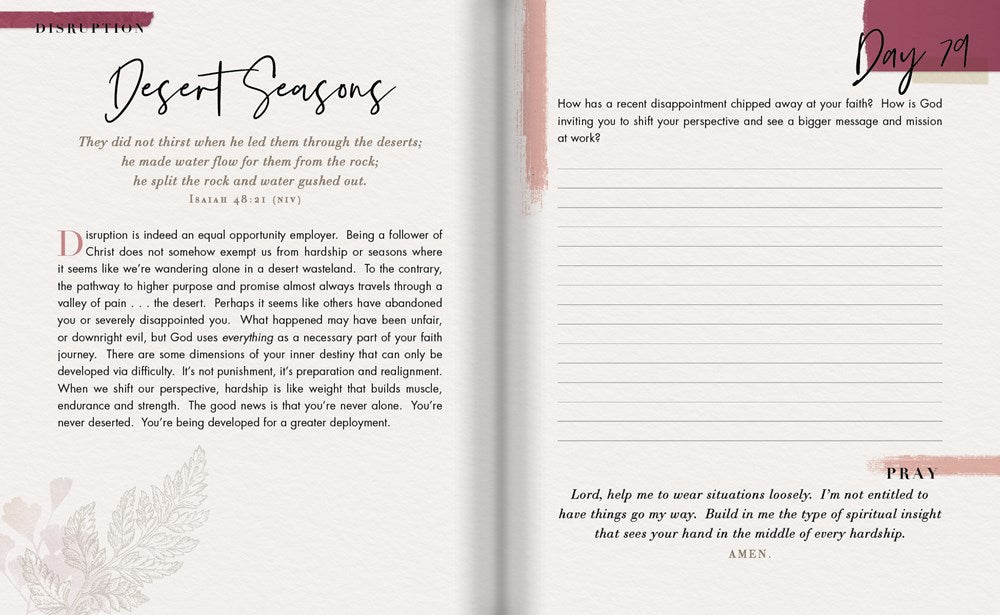 DISRUPTION
Desert Seasons
They did not thirst when he led them through the deserts;
he made water flow for them from the rock;
he split the rock and water gushed out.
Isaiah 48:21 (NIV)
Disruption is indeed an equal opportunity employer. Being a follower of
Christ does not somehow exempt us from hardship or seasons where
it seems like we're wandering alone in a desert wasteland. To the contrary,
the pathway to higher purpose and promise almost always travels through a
valley of pain . . . the desert. Perhaps it seems like others have abandoned
you or severely disappointed you. What happened may have been unfair,
or downright evil, but God uses everything as a necessary part of your faith
journey. There are some dimensions of your inner destiny that can only be
developed via difficulty. It's not punishment, it's preparation and realignment.
When we shift our perspective, hardship is like weight that builds muscle,
endurance and strength. The good news is that you're never alone. You're
never deserted. You're being developed for a greater deployment.
Day 79
How has a recent disappointment chipped away at your faith? How is God
inviting you to shift your perspective and see a bigger message and mission
at work?
PRAY
Lord, help me to wear situations loosely. I'm not entitled to
have things go my way. Build in me the type of spiritual insight
that sees your hand in the middle of every hardship.
AMEN.